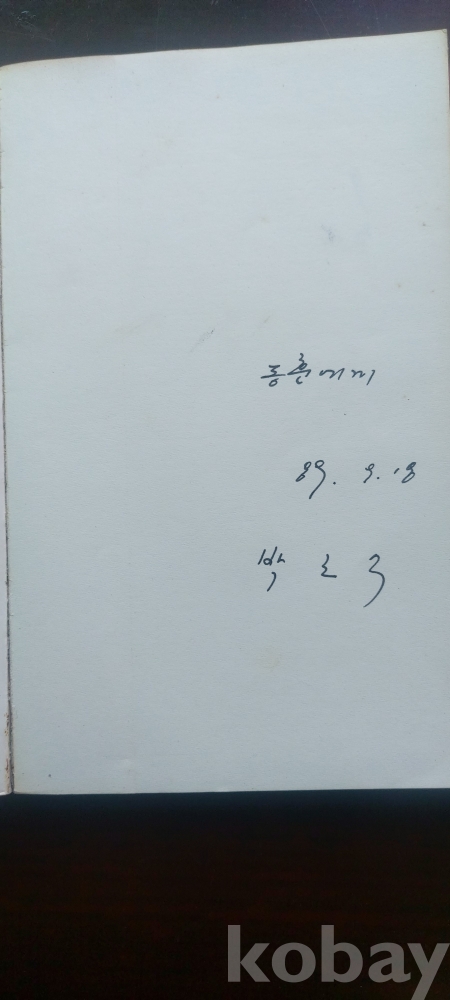 동훈에게
89. 9. 18
박
kobay